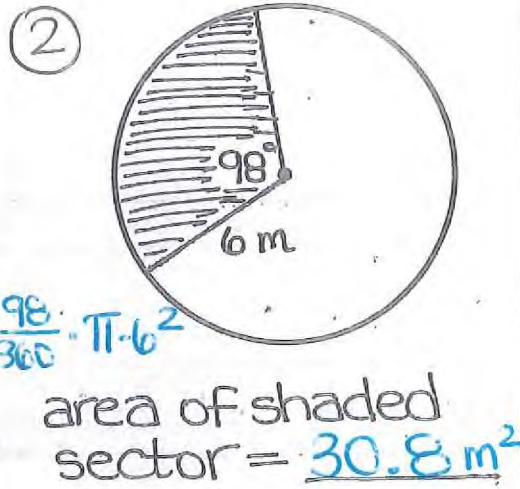 2
98°
6 m
98/360 · π · 6²
area of shaded
sector = 30.8 m²